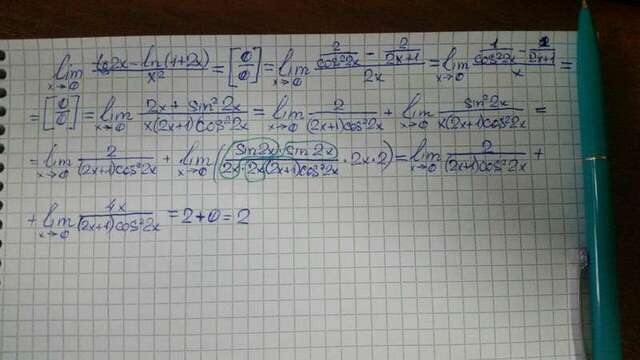 lim x→0 (tg2x - ln(1+2x))/x² = [0/0] = lim x→0 (2/cos²2x - 2/(2x+1))/2x = lim x→0 (1/cos²2x - 1/(2x+1))/x =
= [0/0] = lim x→0 (2x + sin²2x)/(x(2x+1)cos²2x) = lim x→0 2/((2x+1)cos²2x) + lim x→0 sin²2x/(x(2x+1)cos²2x) =
= lim x→0 2/((2x+1)cos²2x) + lim x→0 ((sin2x · sin2x)/(2x · 2x(2x+1)cos²2x) · 2x · 2) = lim x→0 2/((2x+1)cos²2x) +
+ lim x→0 4x/((2x+1)cos²2x) = 2+0 = 2